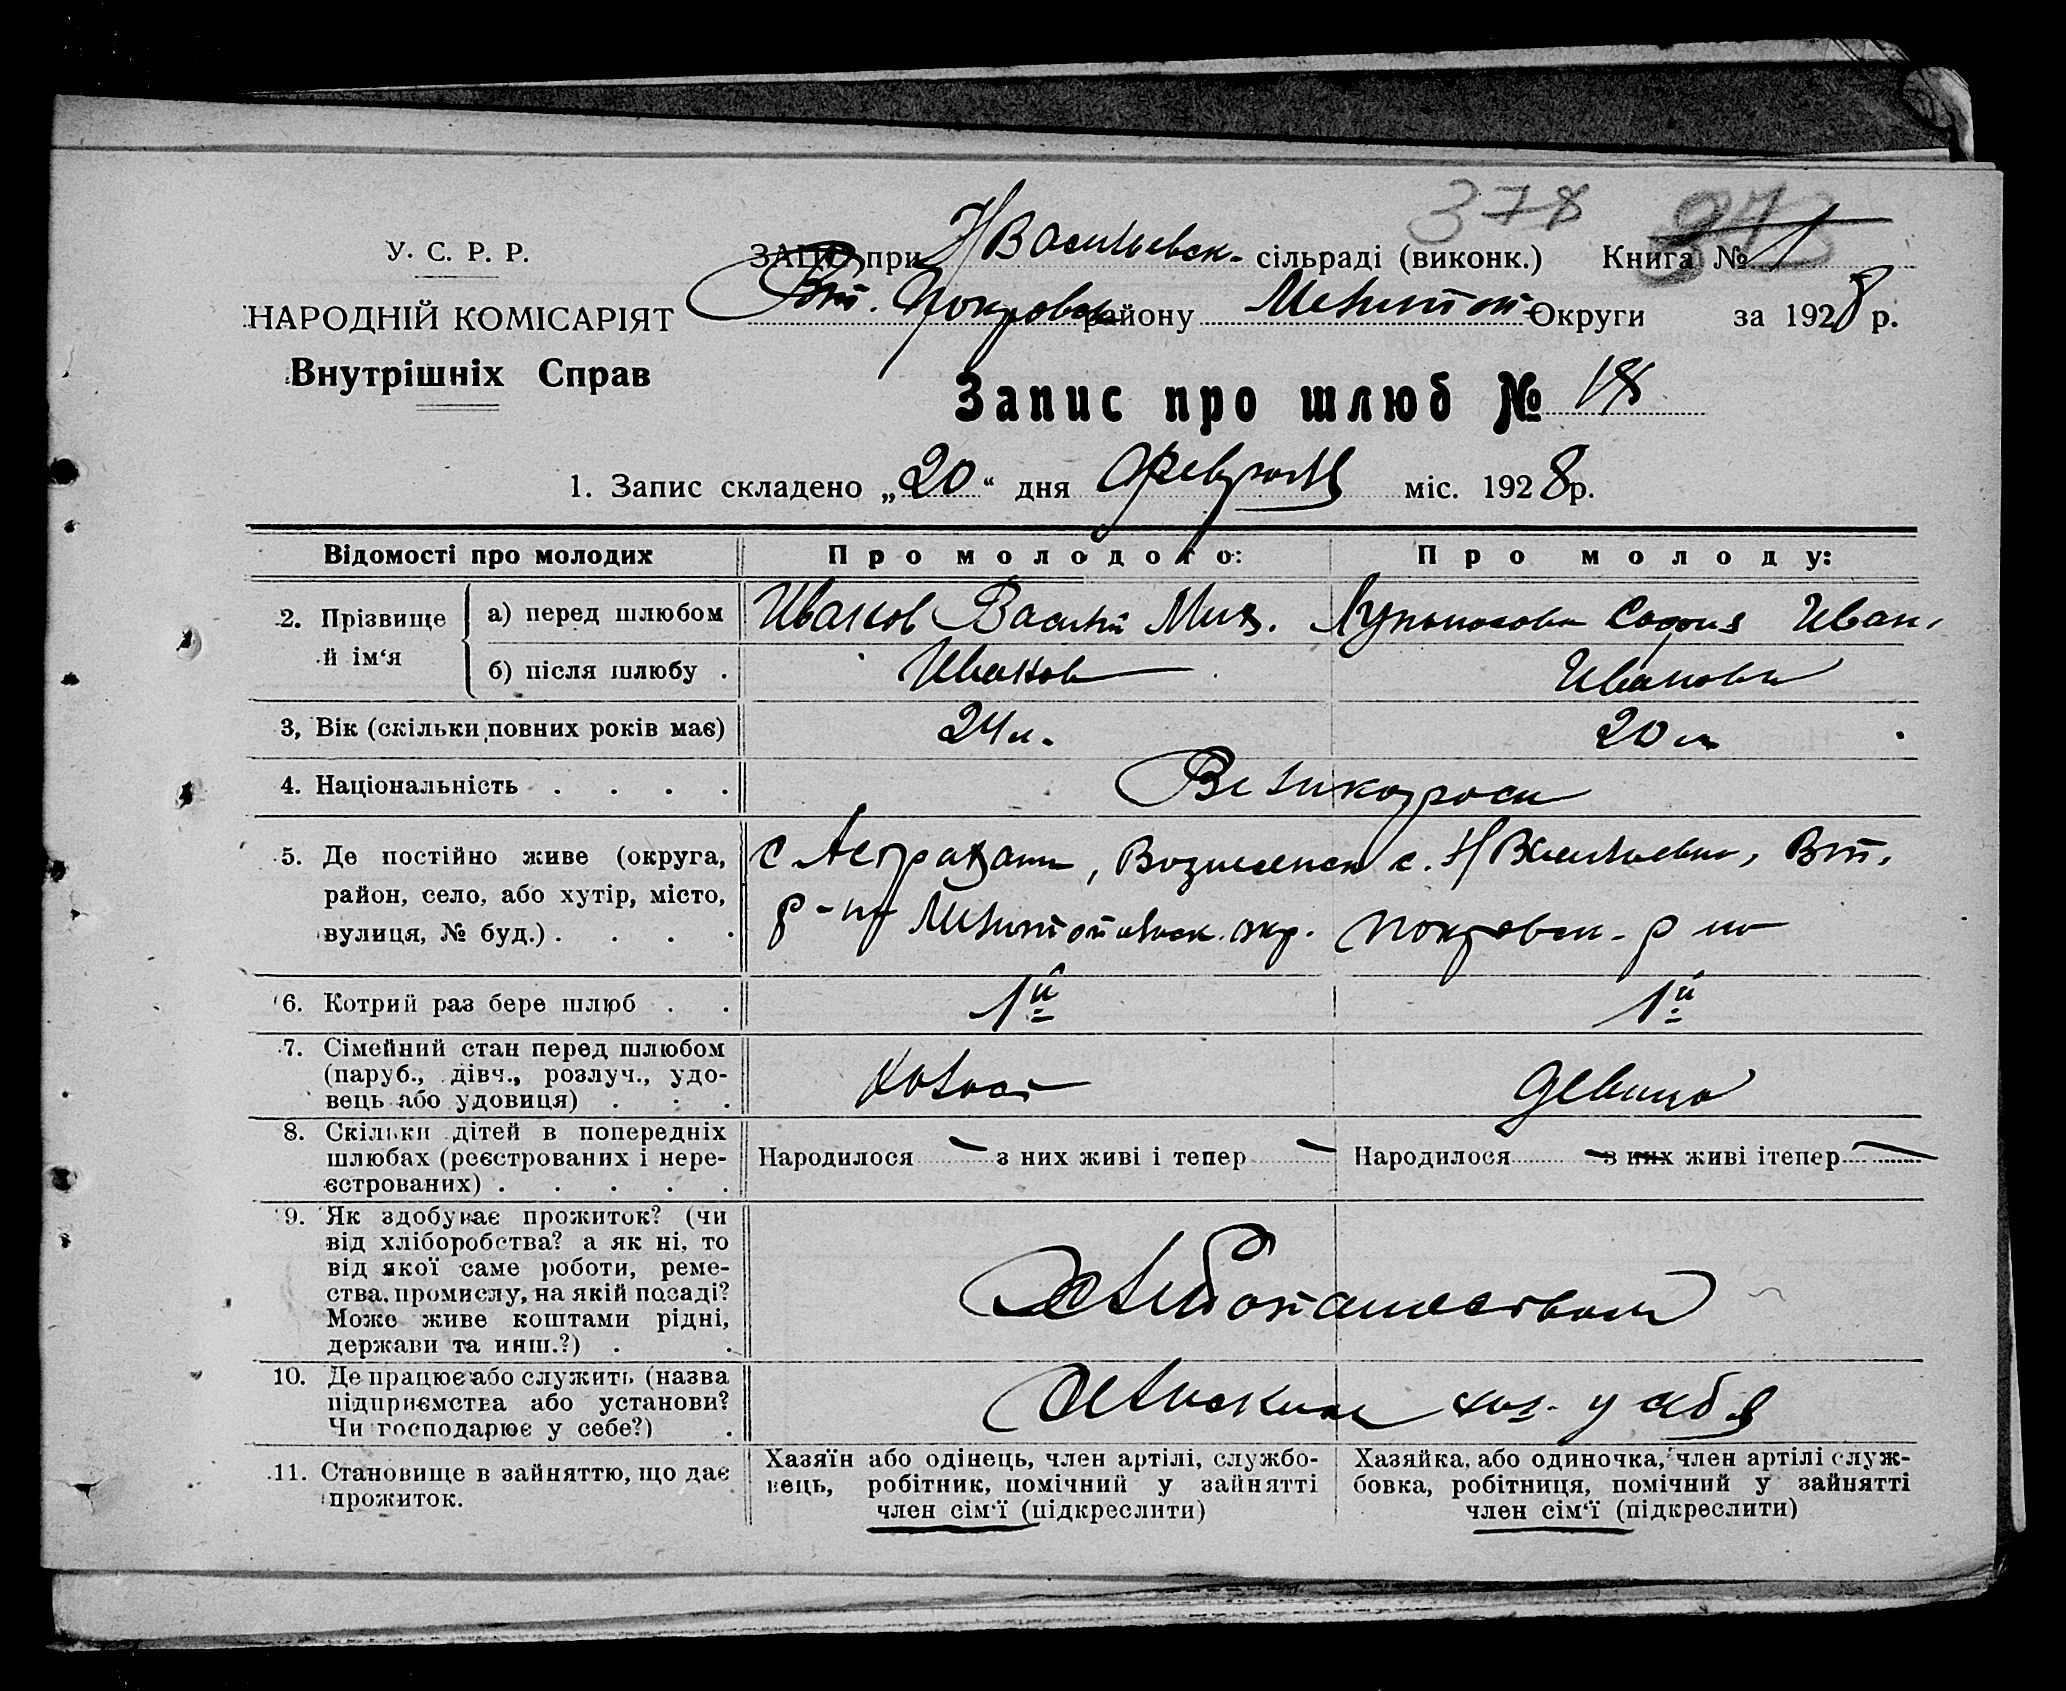 378
У. С. Р. Р.
НАРОДНІЙ КОМІСАРІЯТ
Внутрішніх Справ
ЗАЦС при НВасильевск. сільраді (виконк.) Книга № 1
Вт. Покровск району Мелитоп Округи за 1928 р.
Запис про шлюб № 18
1. Запис складено „20“ дня Февраля міс. 1928 р.
Відомості про молодих
Про молодого:
Про молоду:
2. Прізвище й ім‘я
а) перед шлюбом
Иванов Василий Мих.
София Иван.
б) після шлюбу .
Иванов
Иванова
3, Вік (скільки повних років має)
24 л.
20 л
4. Національність . . . .
Великороси
5. Де постійно живе (округа,
район, село, або хутір, місто,
вулиця, № буд.) . . . .
с Астрахани, Вознесенск
р-на Мелитопольск. окр.
с. НВасильевка, Вт.
Покровск. р на
6. Котрий раз бере шлюб . .
1й
1й
7. Сімейний стан перед шлюбом
(паруб., дівч., розлуч., удо-
вець або удовиця) . . .
холост
девица
8. Скільки дітей в попередніх
шлюбах (реєстрованих і нере-
єстрованих) . . . . .
Народилося — з них живі і тепер —
Народилося — з них живі ітепер —
9. Як здобуває прожиток? (чи
від хліборобства? а як ні, то
від якої саме роботи, реме-
ства, промислу, на якій посаді?
Може живе коштами рідні,
держави та инш.?) . .
Хлебопашеством
10. Де працює або служить (назва
підприємства або установи?
Чи господарює у себе?) .
Сельским хоз. у себя
11. Становище в зайняттю, що дає
прожиток.
Хазяїн або одінець, член артілі, службо-
вець, робітник, помічний у зайнятті
член сім‘ї (підкреслити)
Хазяйка, або одиночка, член артілі служ-
бовка, робітниця, помічний у зайнятті
член сім‘ї (підкреслити)